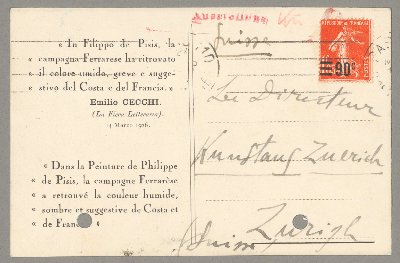 « In Filippo de Pisis, la
« campagna Ferrarese ha ritrovato
« il colore umido, greve e sugge-
« stivo del Costa e del Francia. »
Emilio CECCHI.
(La Fiera Letteraria.)
14 Marzo 1926.
« Dans la Peinture de Philippe
« de Pisis, la campagne Ferrarèse
« a retrouvé la couleur humide,
« sombre et suggestive de Costa et
« de Francia »
Suisse
90c
Le Directeur
Kunsthaus Zuerich
Zurigh
Suisse